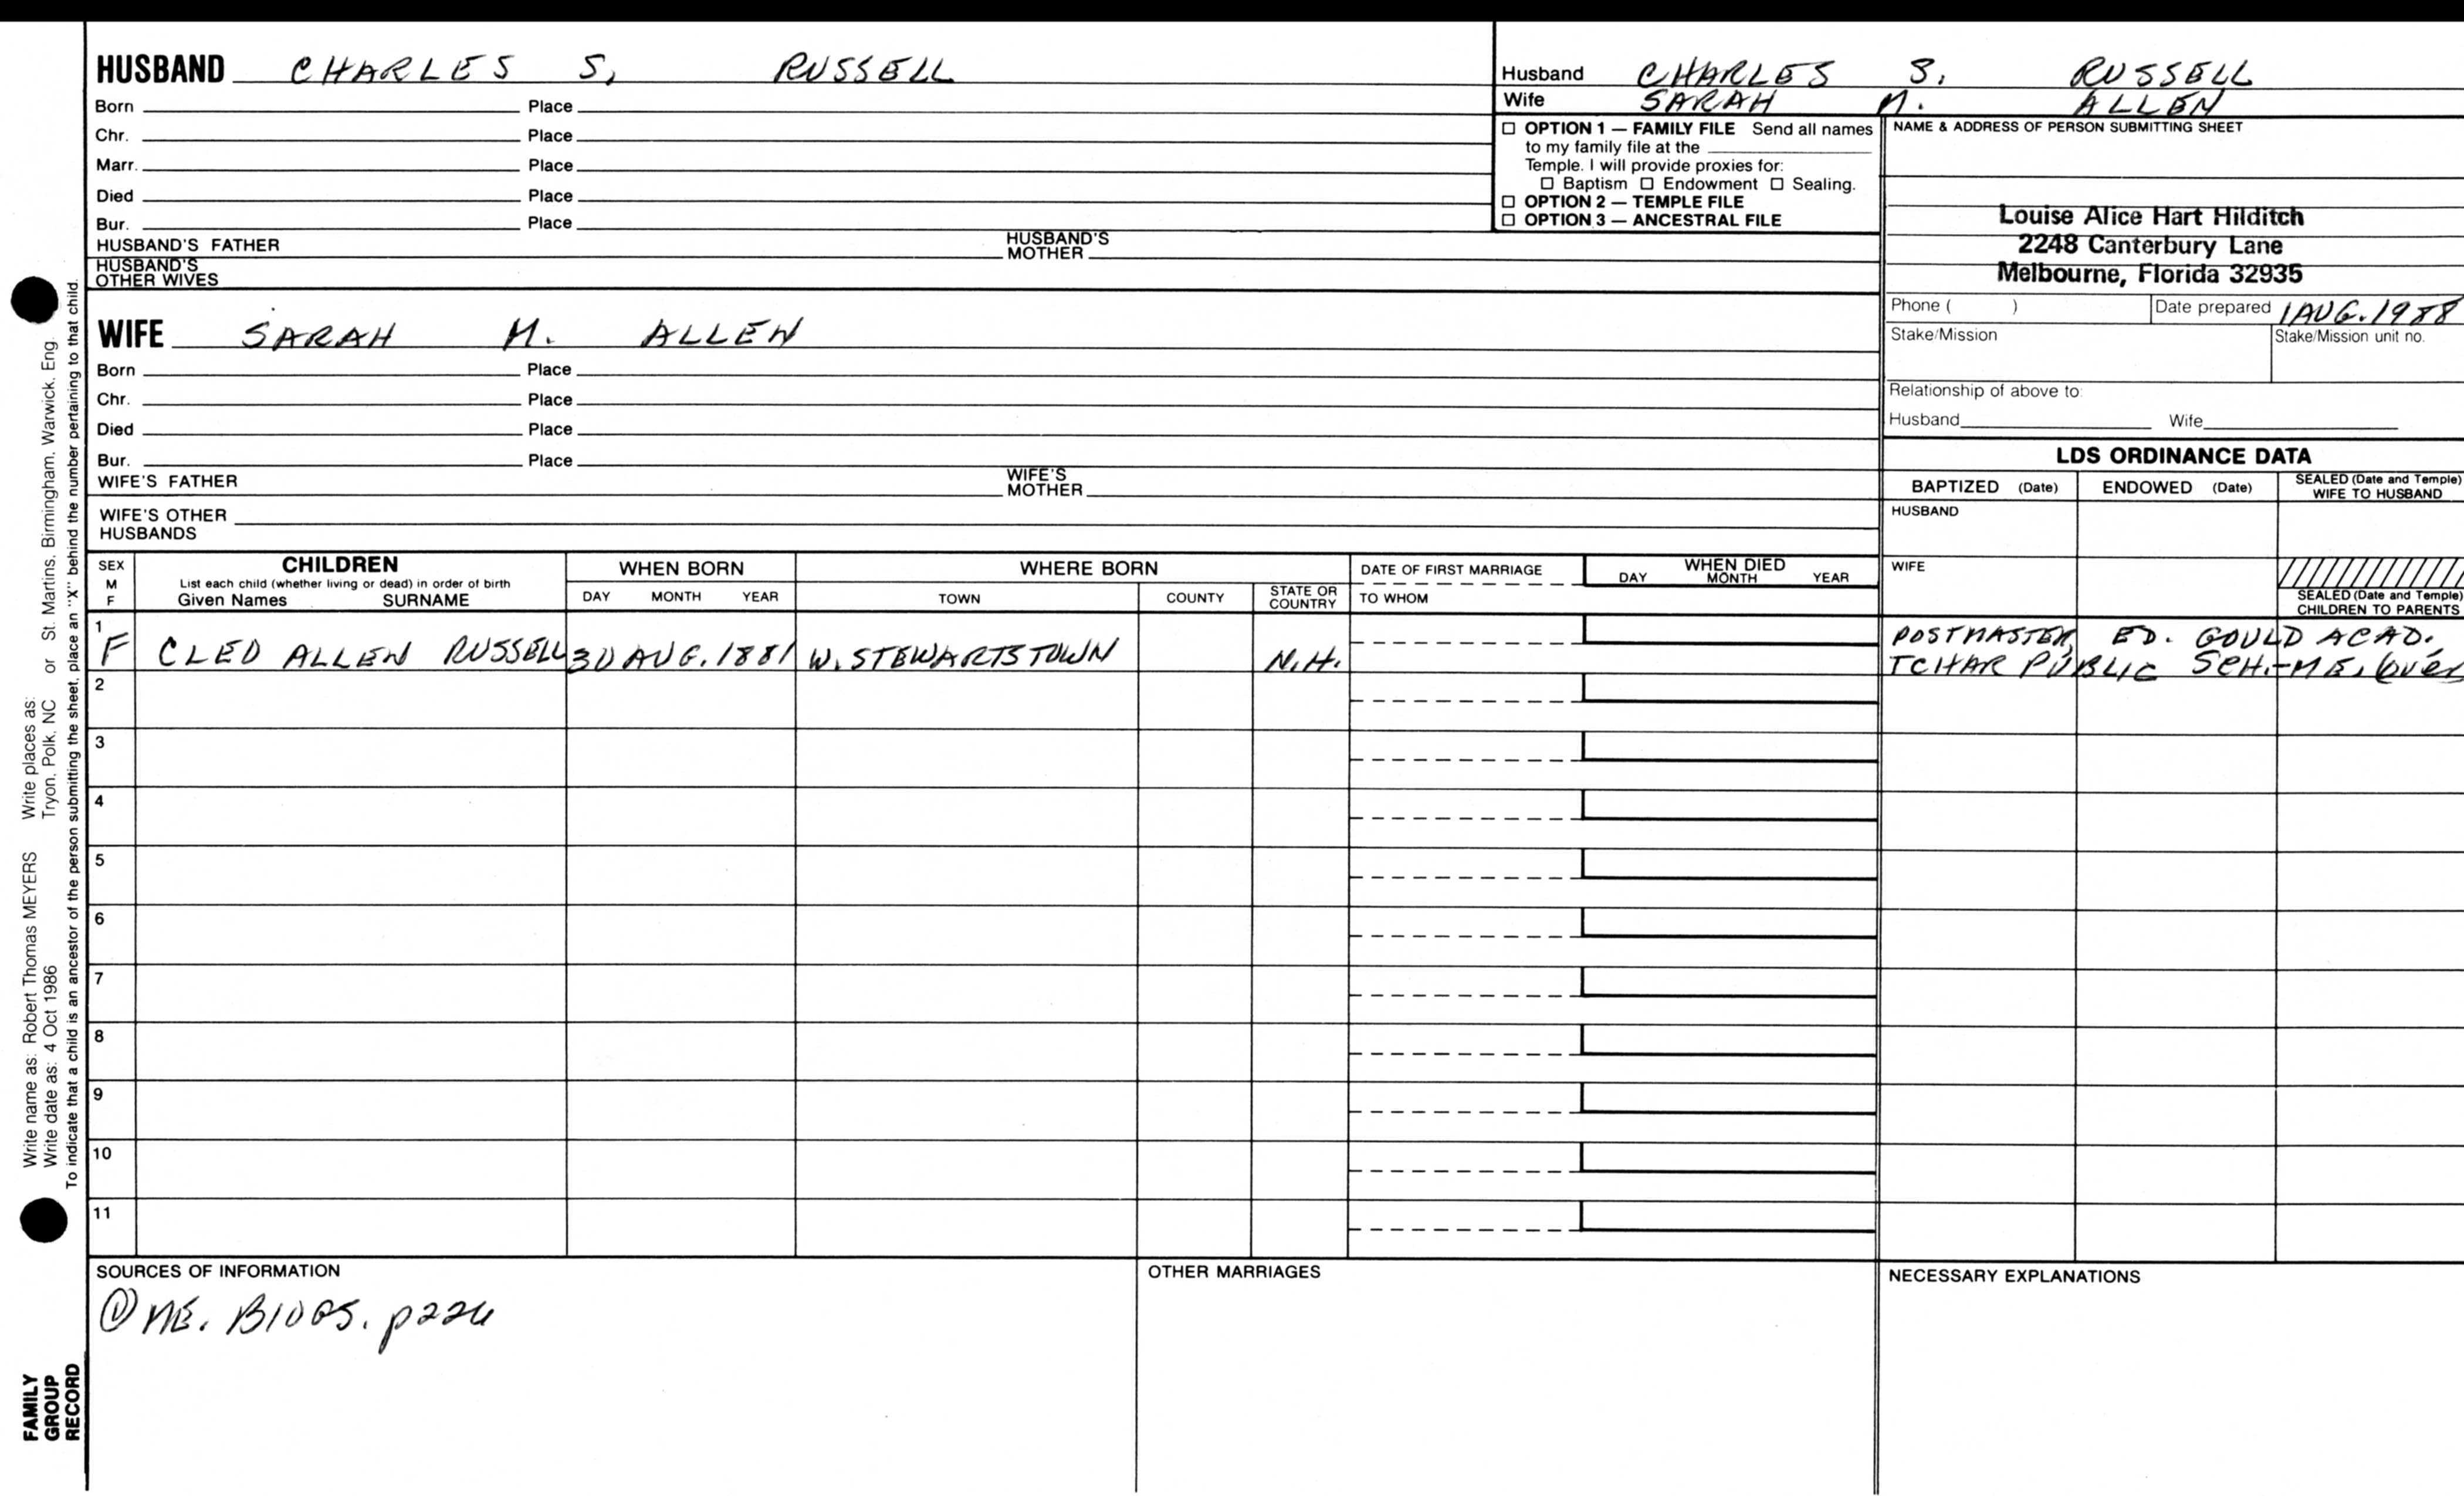 HUSBAND CHARLES S. RUSSELL
Born Place
Chr. Place
Marr. Place
Died Place
Bur. Place
HUSBAND'S FATHER HUSBAND'S MOTHER
HUSBAND'S OTHER WIVES
WIFE SARAH M. ALLEN
Born Place
Chr. Place
Died Place
Bur. Place
WIFE'S FATHER WIFE'S MOTHER
WIFE'S OTHER HUSBANDS
Husband CHARLES S. RUSSELL
Wife SARAH M. ALLEN
☐ OPTION 1 — FAMILY FILE Send all names
to my family file at the
Temple. I will provide proxies for:
☐ Baptism ☐ Endowment ☐ Sealing.
☐ OPTION 2 — TEMPLE FILE
☐ OPTION 3 — ANCESTRAL FILE
NAME & ADDRESS OF PERSON SUBMITTING SHEET
Louise Alice Hart Hilditch
2248 Canterbury Lane
Melbourne, Florida 32935
Phone ( ) Date prepared 1 AUG. 1988
Stake/Mission Stake/Mission unit no.
Relationship of above to:
Husband Wife
LDS ORDINANCE DATA
BAPTIZED (Date) ENDOWED (Date) SEALED (Date and Temple) WIFE TO HUSBAND
HUSBAND
WIFE
SEALED (Date and Temple) CHILDREN TO PARENTS
SEX M F
CHILDREN
List each child (whether living or dead) in order of birth
Given Names SURNAME
WHEN BORN
DAY MONTH YEAR
WHERE BORN
TOWN COUNTY STATE OR COUNTRY
DATE OF FIRST MARRIAGE
TO WHOM
WHEN DIED
DAY MONTH YEAR
1 F CLED ALLEN RUSSELL 30 AUG. 1881 W. STEWARTSTOWN N.H.
POSTMASTER, ED. GOULD ACAD.
TCHAR PUBLIC SCH.-ME. over
2
3
4
5
6
7
8
9
10
11
SOURCES OF INFORMATION
① ME. BIOGS. p
OTHER MARRIAGES
NECESSARY EXPLANATIONS
Write name as: Robert Thomas MEYERS Write places as:
Write date as: 4 Oct 1986 Tryon, Polk, NC or St. Martins, Birmingham, Warwick, Eng.
To indicate that a child is an ancestor of the person submitting the sheet, place an "X" behind the number pertaining to that child.
FAMILY
GROUP
RECORD